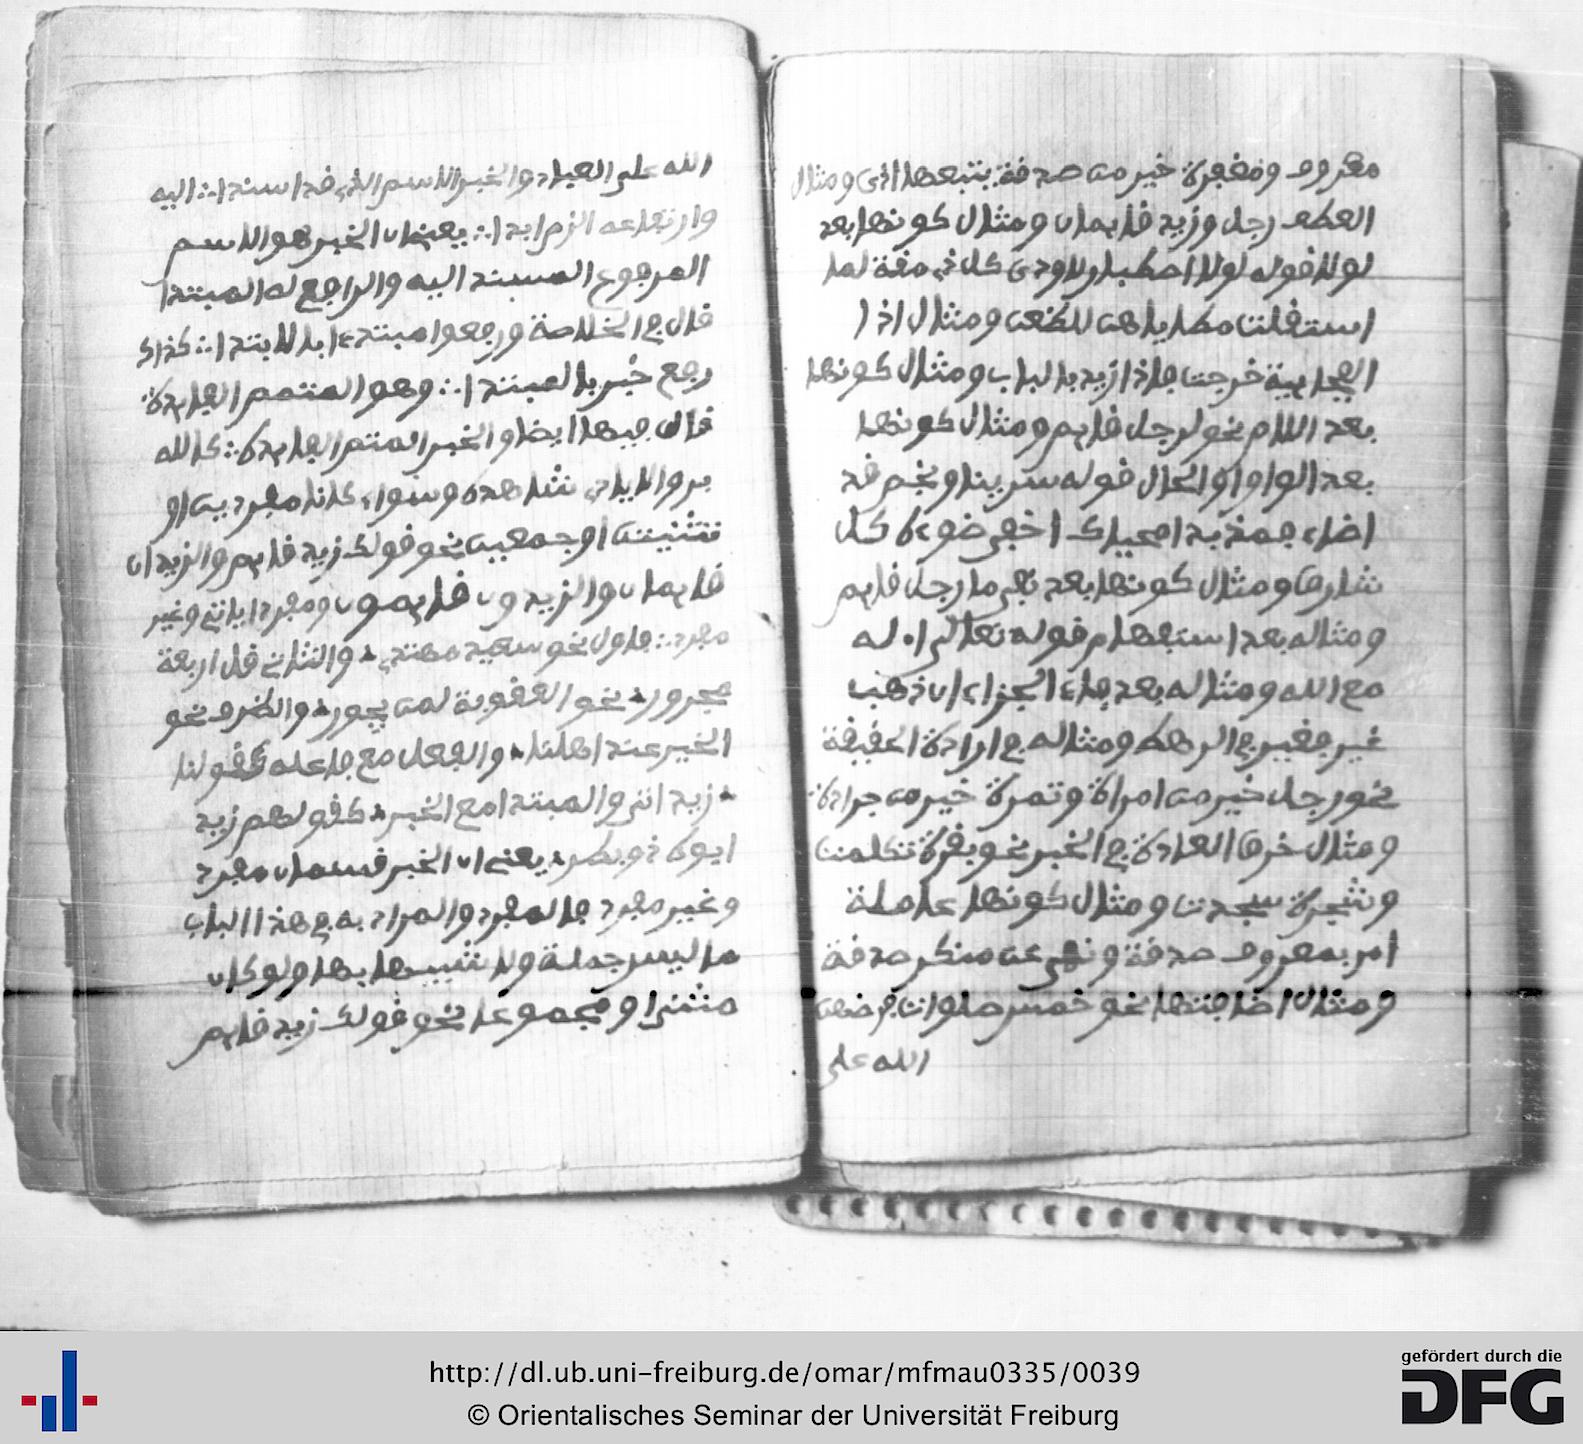 معروف ومغفرة خير من صدقة يتبعها اذى ومثال
العطف رجل وزيد قايمان ومثال كونها بعد
لولا قوله لولا اصطبار لاودى كل ذي مقة لما
استقلت مطاياهن للظعن ومثال اذا
الفجايية خرجت فاذا زيد بالباب ومثال كونها
بعد اللام نحو لرجل قايم ومثال كونها
بعد الواو او الحال قوله سرينا ونجم قد
اضاء فمذ بدا محياك اخفى ضوءه كل
شارق ومثال كونها بعد نفي ما رجل قايم
ومثاله بعد استفهام قوله تعالى اءله
مع الله ومثاله بعد فاء الجزاء ان ذهب
غير فغير في الرهط ومثاله في ارادة الحقيقة
نحو رجل خير من امراة وتمرة خير من جرادة
ومثال خرق العادة في الخبر نحو بقرة تكلمت
وشجرة سجدت ومثال كونها عاملة
امر بمعروف صدقة ونهي عن منكر صدقة
ومثال اضافتها نحو خمس صلوات فرضهن
الله على
الله على العباد والخبر الاسم الذي قد اسندا ∴ اليه
وارتفاعه الزم ابدا ∴ يعني ان الخبر هو الاسم
المرجوع المسند اليه والراجع له المبتدا
قال في الخلاصة ورفعوا مبتدءا بالابتدا ∴ كذاك
رفع خبر بالمبتدا ∴ وهو المتمم الفايدة
قال فيها ايضا والخبر المتم الفايدة ∴ كالله
بر والايادي شاهده وسواء كانا مفردين او
تثنيتين او جمعين نحو قولك زيد قايم والزيدان
قايمان والزيدون قايمون ومفردا ياتي وغير
مفرد ∴ فاول نحو سعيد مهتدي ∴ والثاني قل اربعة
مجرور ∴ نحو العقوبة لمن يجور ∴ والظرف نحو
الخير عند اهلنا ∴ والفعل مع فاعله كقولنا
∴ زيد اتى والمبتدا مع الخبر ∴ كقولهم زيد
ابوه ذو بطر ∴ يعني ان الخبر قسمان مفرد
وغير مفرد فالمفرد والمراد به في هذا الباب
ما ليس جملة ولا شبيهها بها ولو كان
مثنى او مجموعا نحو قولك زيد قايم
http://dl.ub.uni-freiburg.de/omar/mfmau0335/0039
© Orientalisches Seminar der Universität Freiburg
gefördert durch die
DFG